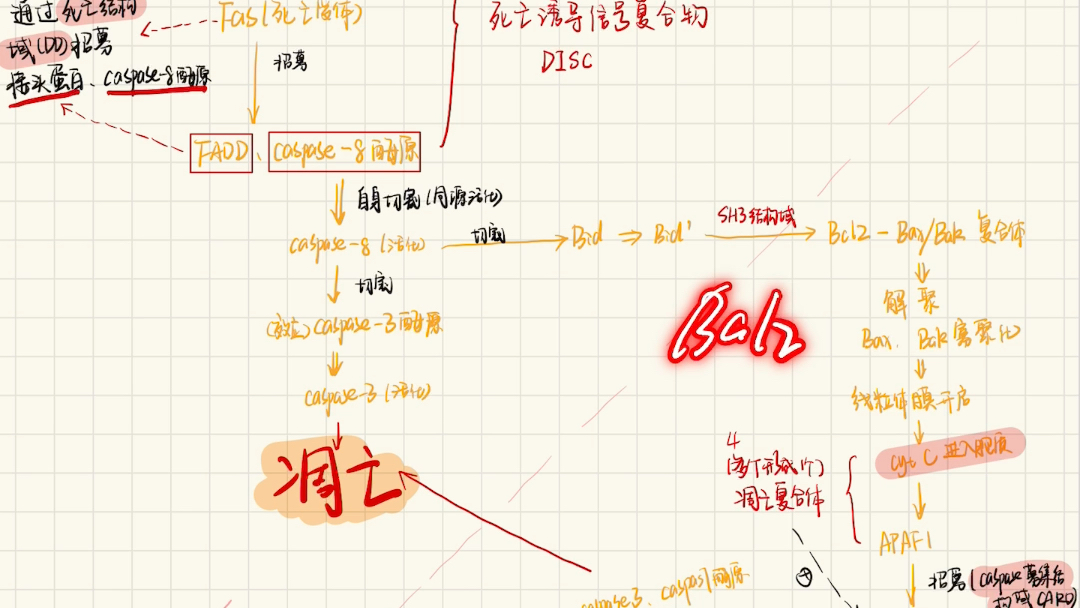 通过死亡结构
域(DD)招募
接头蛋白、caspase-8酶原
Fas(死亡受体)
招募
死亡诱导信号复合物
DISC
FADD、caspase-8酶原
自身切割(同源活化)
caspase-8(活化)
切割
Bid ⇒ Bid'
SH3结构域
Bcl2-Bax/Bak复合体
切割
(效应)caspase-3酶原
解聚
Bax、Bak寡聚化
Bcl2
caspase-3(活化)
线粒体膜开启
凋亡
4
(多个形成1个)
凋亡复合体
cyt C进入胞质
APAF1
招募(caspase募集结
构域CARD)
caspase3、caspas7酶原